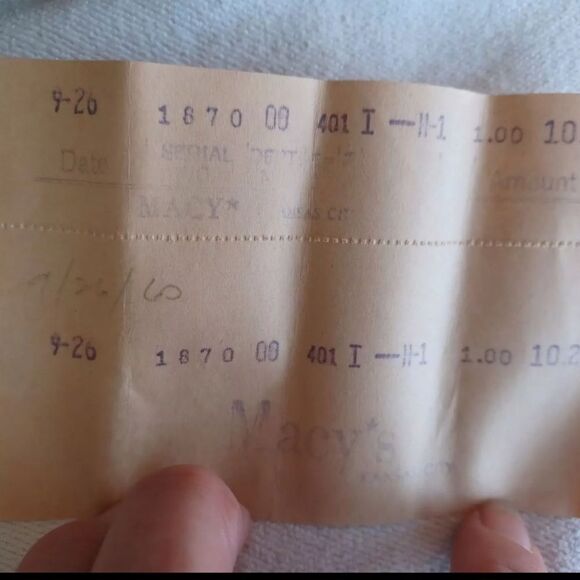 9-26 1870 00 401 I —H-1 1.00 10
Date SERIAL DEPT Amount
MACY* KANSAS CITY
9/26/60
9-26 1870 00 401 I —H-1 1.00 10.2
Macy*s
KANSAS CITY